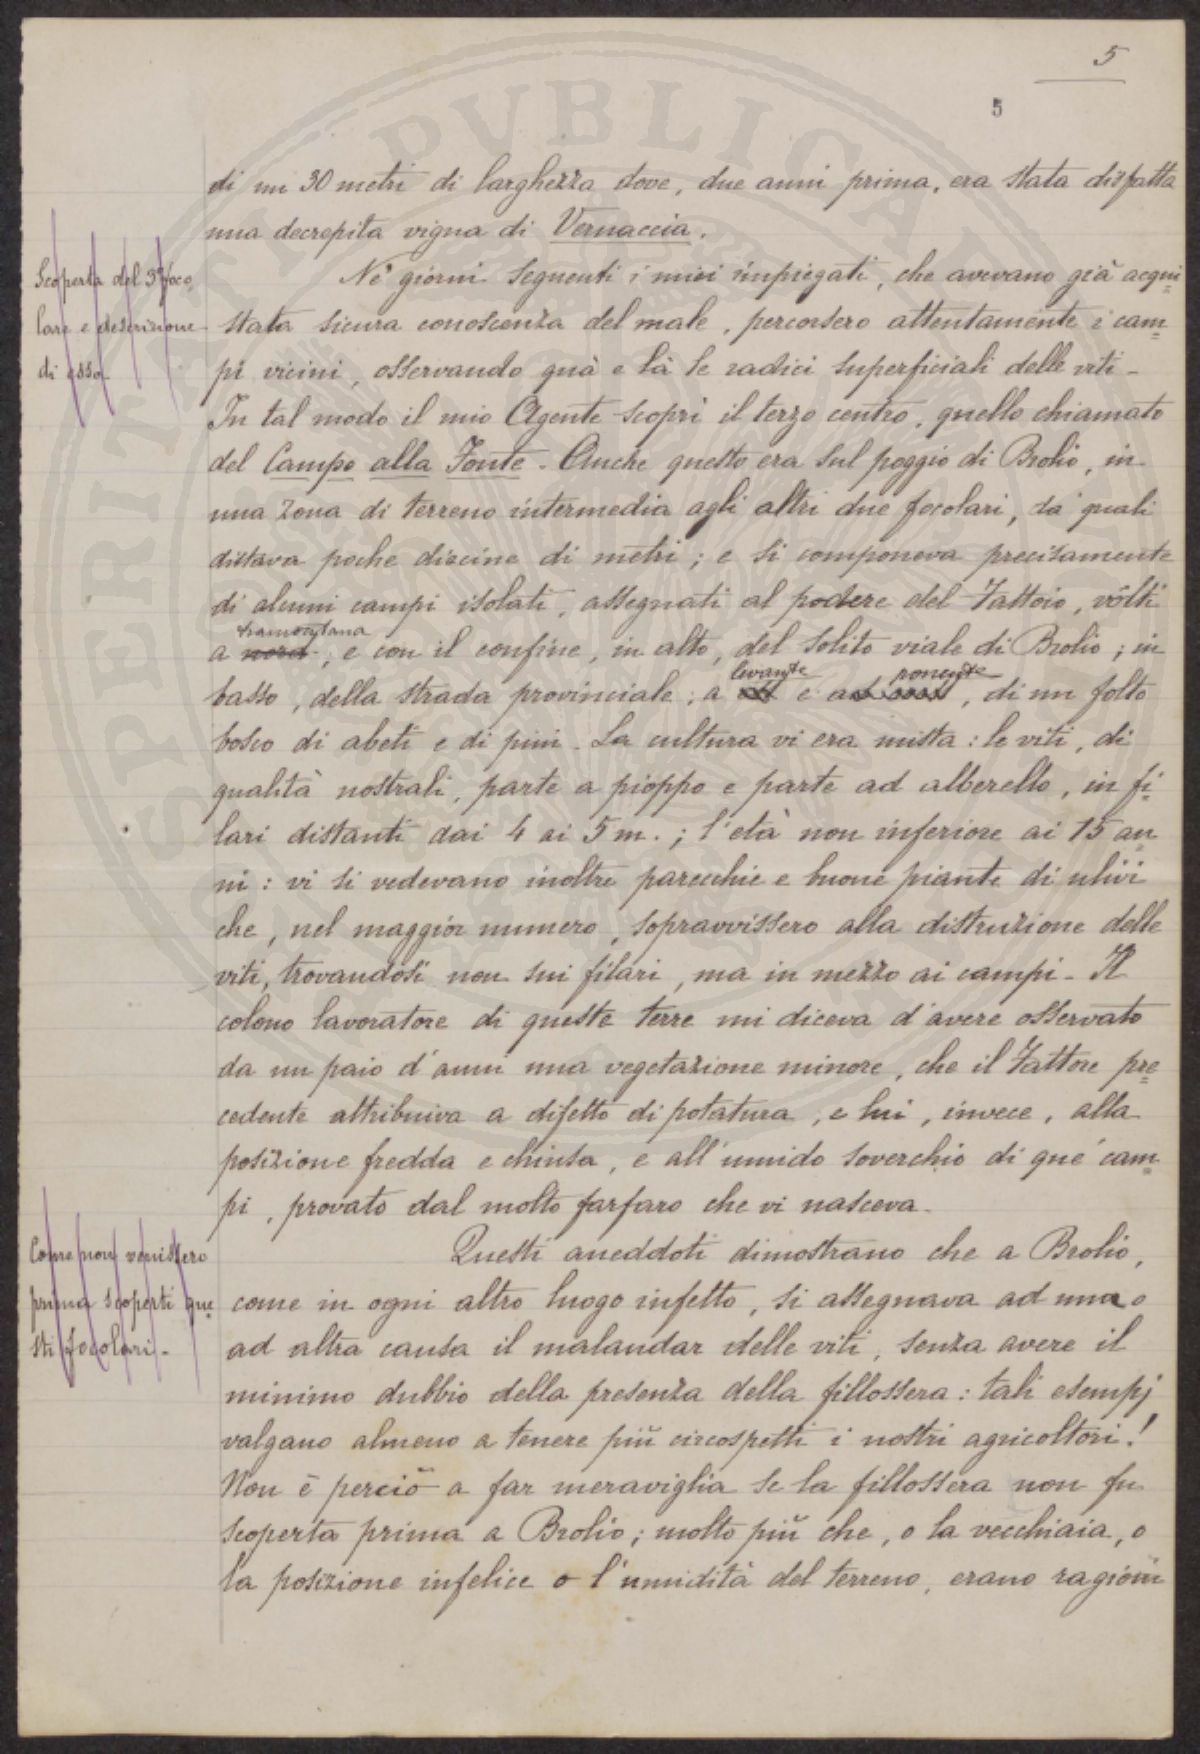 5
5
di un 30 metri di larghezza dove, due anni prima, era stata disfatta
una decrepita vigna di Vernaccia.
Scoperta del 3° foco
lare e descrizione
di esso
Nè giorni seguenti i miei impiegati, che avevano già acqui
stata sicura conoscenza del male, percorsero attentamente i cam
pi vicini, osservando quà e là le radici superficiali delle viti -
In tal modo il mio Agente scoprì il terzo centro, quello chiamato
del Campo alla Fonte. Anche questo era sul poggio di Brolio, in
una zona di terreno intermedia agli altri due focolari, da' quali
distava poche diecine di metri; e si componeva precisamente
di alcuni campi isolati, assegnati al podere del Fattoio, vòlti
tramontana
a nord; e con il confine, in alto, del solito viale di Brolio; in
levante ponente
basso, della strada provinciale; a est e ad ovest, di un folto
bosco di abeti e di pini. La cultura vi era mista: le viti, di
qualità nostrali, parte a pioppo e parte ad alberello, in fi
lari distanti dai 4 ai 5 m.; l'età non inferiore ai 15 an
ni: vi si vedevano inoltre parecchie e buone piante di ulivi
che, nel maggior numero, sopravvissero alla distruzione delle
viti, trovandosi non sui filari, ma in mezzo ai campi - Il
colono lavoratore di queste terre mi diceva d'avere osservato
da un paio d'anni una vegetazione minore, che il Fattore pre
cedente attribuiva a difetto di potatura, e lui, invece, alla
posizione fredda e chiusa, e all'umido soverchio di que' cam
pi, provato dal molto farfaro che vi nasceva.
Come non venissero
prima scoperti que
sti focolari -
Questi aneddoti dimostrano che a Brolio,
come in ogni altro luogo infetto, si assegnava ad una o
ad altra causa il malandar delle viti, senza avere il
minimo dubbio della presenza della fillossera: tali esempj
valgano almeno a tenere più circospetti i nostri agricoltori!
Non è perciò a far meraviglia se la fillossera non fu
scoperta prima a Brolio; molto più che, o la vecchiaia, o
la posizione infelice o l'umidità del terreno, erano ragioni